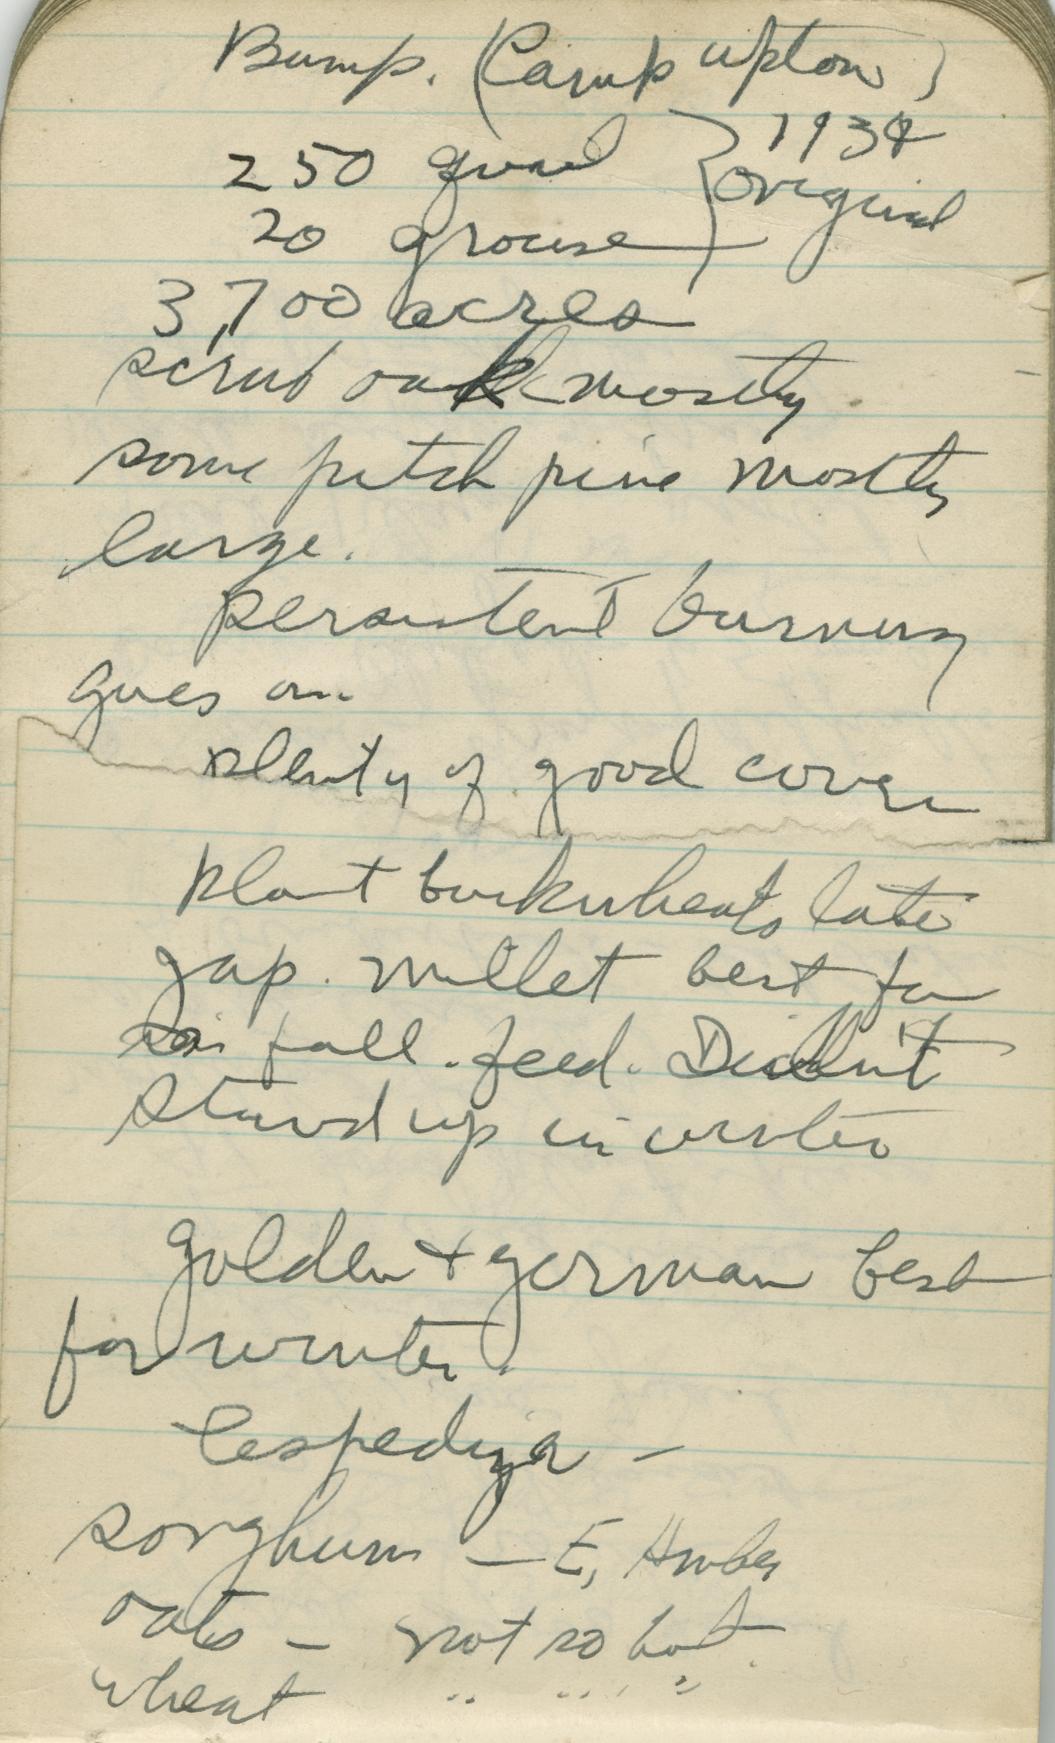 Bump. (Camp Upton)
1934
250 quail } original
20 grouse
3,700 acres
scrub oak mostly.
some pitch pine mostly
large.
persistent burning
goes on.
plenty of good cover
plant buckwheats late
Jap. millet best for
fall feed. Didn't
stand up in winter
golden + german best
for winter.
lespediza -
sorghum - E,
oats - not so hot.
wheat " " " "